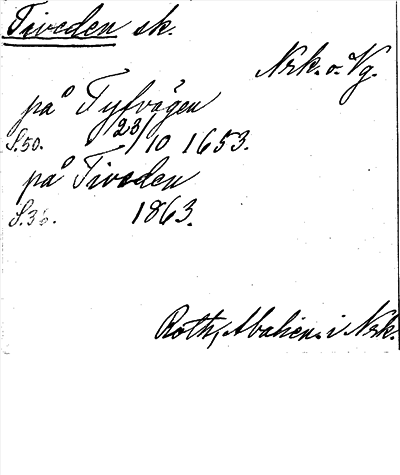 Tiveden sk.
Nrk. o. Vg.
på Tyfvägen
S. 50. 23/10 1653.
på Tiveden
S. 36. 1863.
Roth, i Nrk.